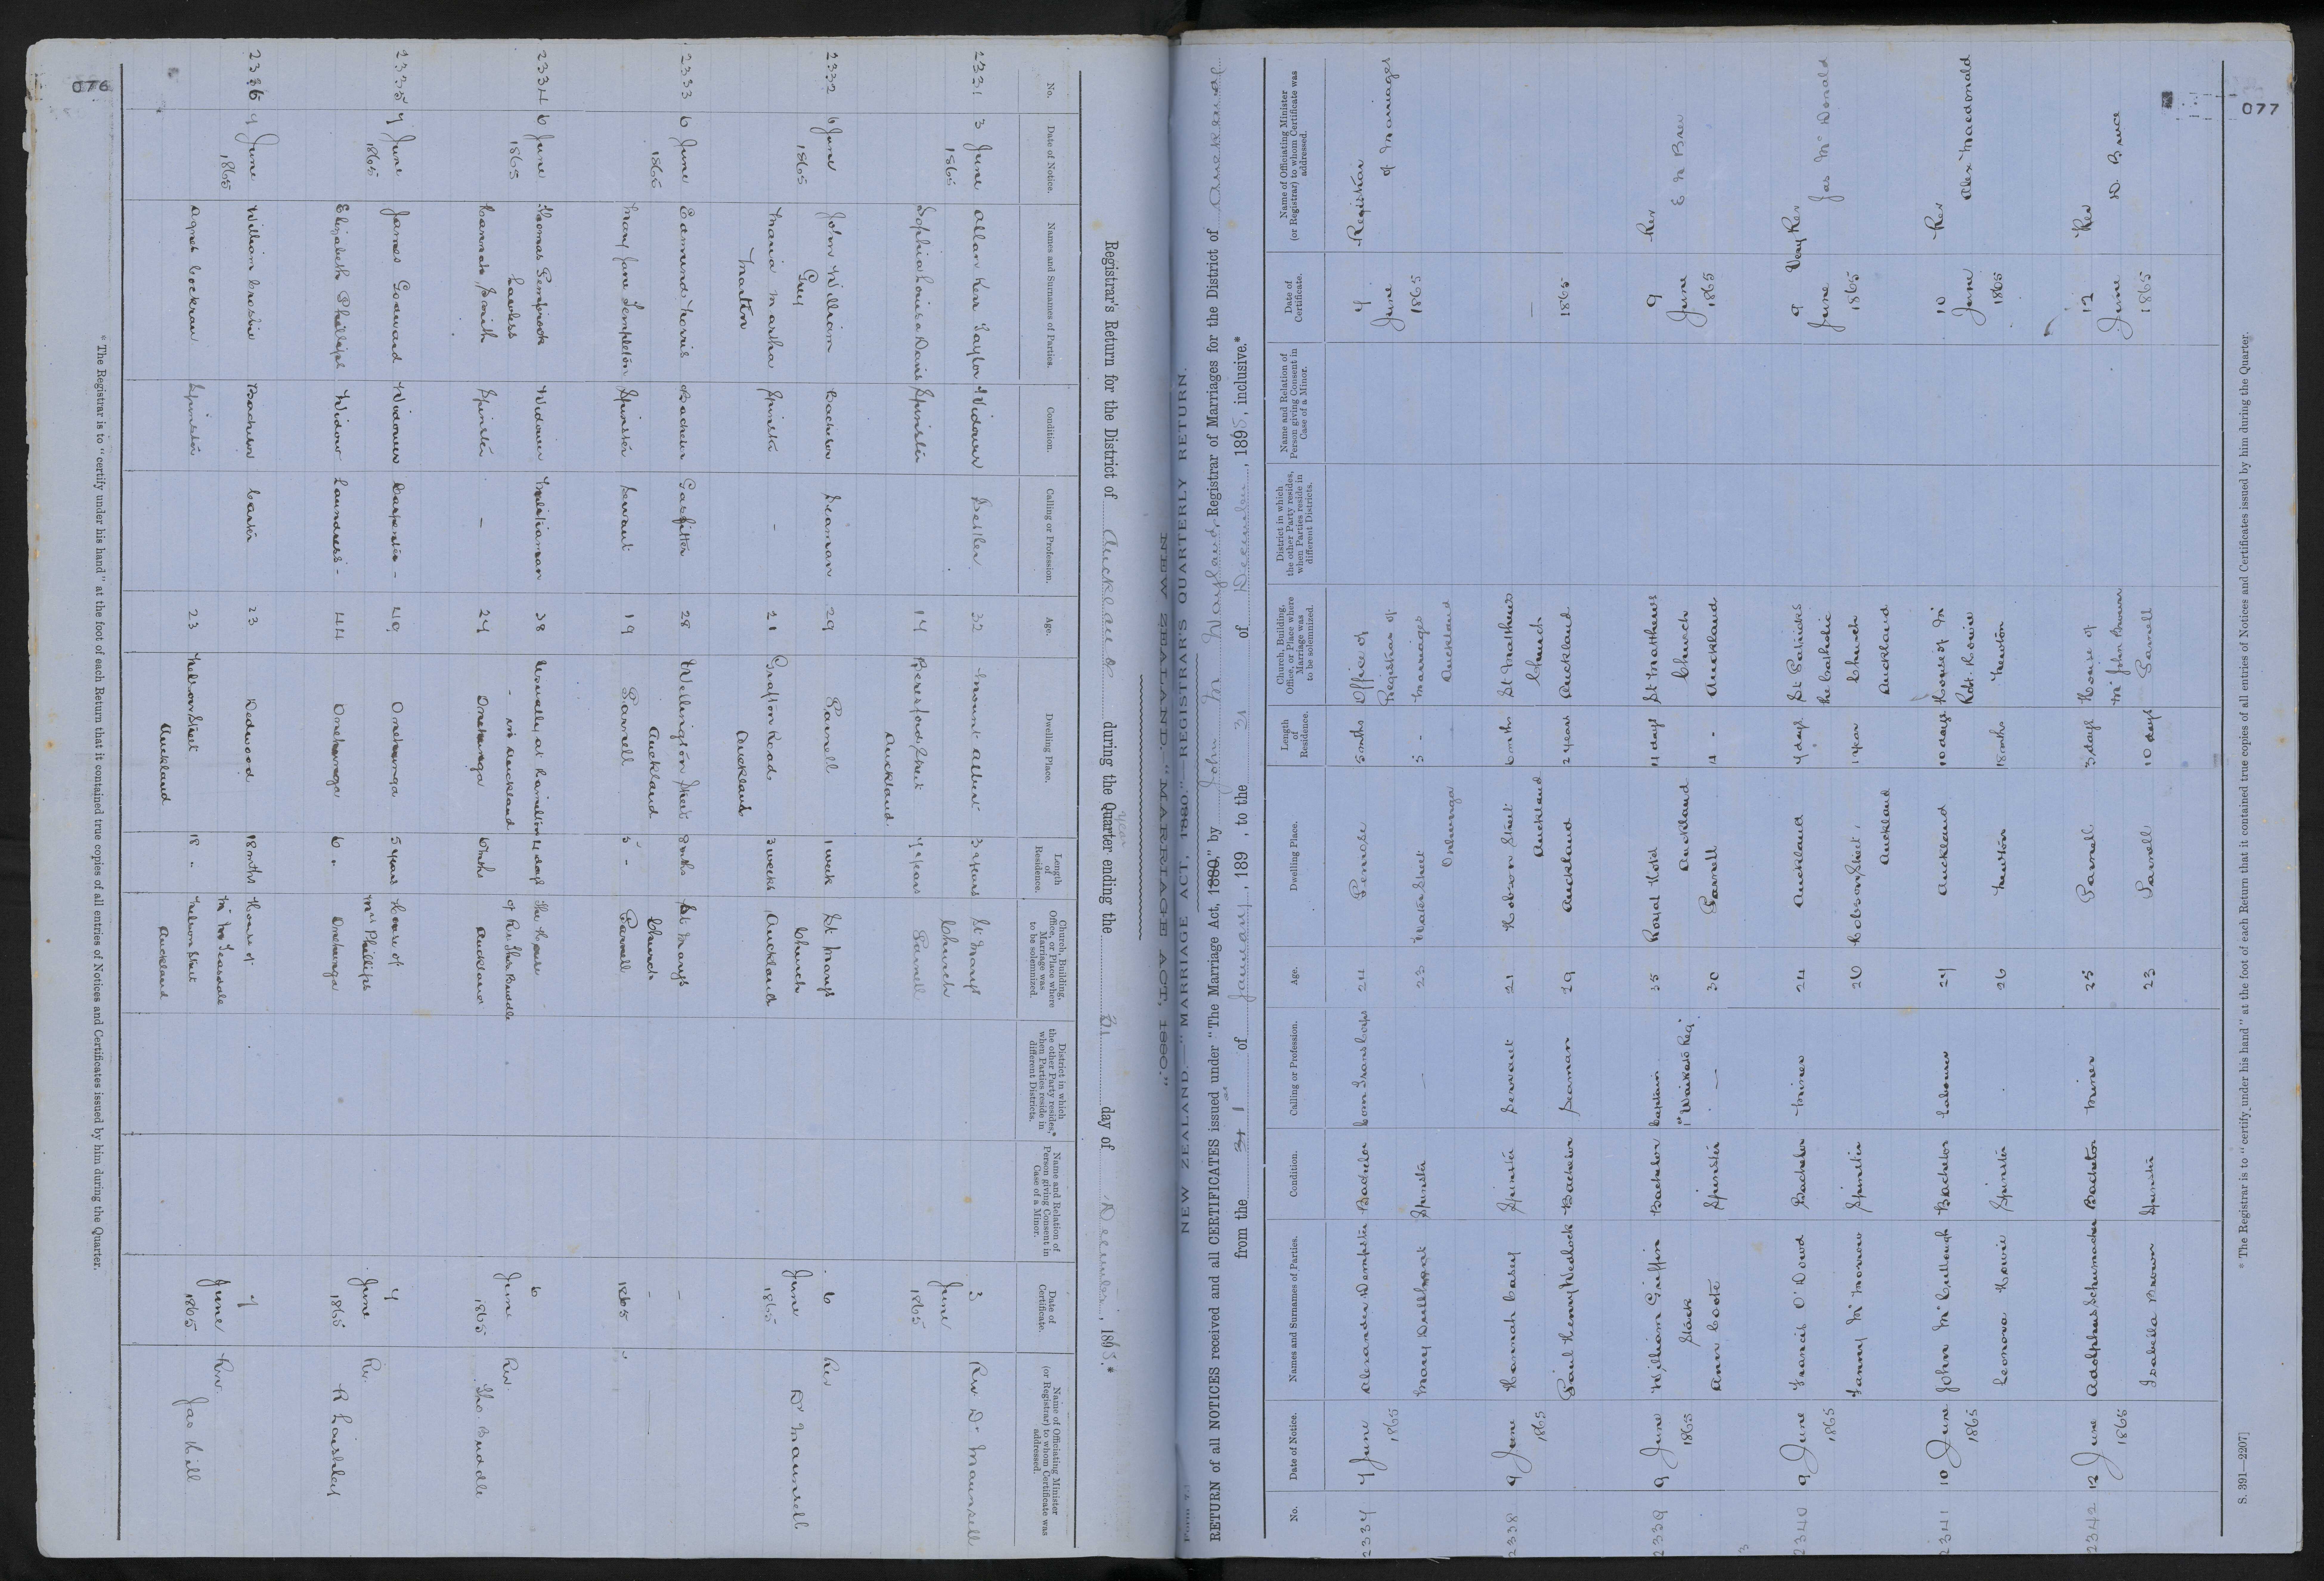 076
Registrar's Return for the District of Auckland during the Quarter year ending the 31 day of December, 1865.*
No.
Date of Notice.
Names and Surnames of Parties.
Condition.
Calling or Profession.
Age.
Dwelling Place.
Length of Residence.
Church, Building, Office, or Place where Marriage was to be solemnized.
District in which the other Party resides,* when Parties reside in different Districts.
Name and Relation of Person giving Consent in Case of a Minor.
Date of Certificate.
Name of Officiating Minister (or Registrar) to whom Certificate was addressed.
2331 3 June Allan Kerr Taylor Widower Settler 32 Mount Albert 3 years St Marys 3 Rev Dr Maunsell
1865 Church June
Sophia Louisa Davis Spinster 14 Beresford Street 7 years Parnell 1865
Auckland.
2332 6 June John William Bachelor Seaman 29 Parnell 1 week St Marys 6 Rev
1865 Grey Church June Dr Maunsell
Maria Martha Spinster - 21 Grafton Road 3 weeks Auckland 1865
Martin Auckland
2333 6 June Edmund Norris Bachelor Gasfitter 28 Wellington Street 8 mths St Marys -
1865 Auckland Church -
Mary Jane Templeton Spinster Servant 19 Parnell 5 " Parnell 1865 "
2334 6 June Thomas Pembrook Widower Militiaman 38 Usually at Hamilton 4 days The House 6
1865 Lawless - in Auckland of Rev Thos Buddle June Rev
Hannah Smith Spinster - 24 Onehunga 6 mths Auckland 1865 Tho. Buddle
2335 7 June James Goddard Widower Carpenter - 49 Onehunga 5 years House of 7 Rev.
1865 Mrs Phillips June
Elizabeth Phillips Widow Laundress - 44 Onehunga 6 " Onehunga 1865 R Laishley
2336 9 June William Crosbie Bachelor Carter 23 Dedwood 18 mths House of 9
1865 Mr Teasdale June Rev.
Agnes Cockran Spinster 23 Nelson Street 18 " Nelson Street 1865 Jas Hill
Auckland Auckland
* The Registrar is to "certify under his hand" at the foot of each Return that it contained true copies of all entries of Notices and Certificates issued by him during the Quarter.
NEW ZEALAND.—"MARRIAGE ACT, 1880."
077
NEW ZEALAND.—"MARRIAGE ACT, 1880." REGISTRAR'S QUARTERLY RETURN.
RETURN of all NOTICES received and all CERTIFICATES issued under "The Marriage Act, 1880," by John M Wayland, Registrar of Marriages for the District of Auckland
from the 1 of January, 189 , to the 31 of December, 1895, inclusive.*
No.
Date of Notice.
Names and Surnames of Parties.
Condition.
Calling or Profession.
Age.
Dwelling Place.
Length of Residence.
Church, Building, Office, or Place where Marriage was to be solemnized.
District in which the other Party resides, when Parties reside in different Districts.
Name and Relation of Person giving Consent in Case of a Minor.
Date of Certificate.
Name of Officiating Minister (or Registrar) to whom Certificate was addressed.
2337 7 June Alexander Dempster Bachelor Com Transport Corps 24 Penrose 5 mths Office of 7 Registrar
1865 Registrar of June of Marriages
Mary Spinster — 23 Water Street 5 - Marriages 1865
Onehunga Auckland
2338 9 June Hannah Casey Spinster Servant 21 Hobson Street 6 mths St Matthews —
1865 Auckland Church
Paul Henry Wedlock Bachelor Seaman 29 Auckland 2 years Auckland 1865
2339 9 June William Griffin Bachelor Captain 35 Royal Hotel 4 days St Matthews 9 Rev
1865 Stack 1st Waikato Reg. Auckland Church June E N Bree
Ann Coote Spinster — 30 Parnell 4 - Auckland 1865
3
2340 9 June Francis O'Dowd Bachelor Miner 24 Auckland 4 days St Patricks 9 Very Rev
1865 the Catholic June Jas McDonald
Fanny McMorrow Spinster 20 Hobson Street, 1 year Church 1865
Auckland Auckland
2341 10 June John McCullough Bachelor Labourer 27 Auckland 10 days House of Mr 10 Rev
1865 Robt Howie June Alex Macdonald
Leonora Howie Spinster 26 Newton 18 mths Newton 1865
2342 12 June Adolphus Schumacher Bachelor Miner 25 Parnell 3 days House of 12 Rev
1865 Mr John Brown June D. Bruce
Isabella Brown Spinster 23 Parnell 10 days Parnell 1865
S. 391—2207]
* The Registrar is to "certify under his hand" at the foot of each Return that it contained true copies of all entries of Notices and Certificates issued by him during the Quarter.